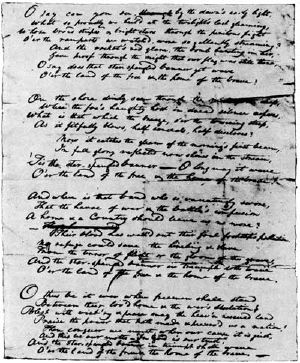 O say can you see by the dawn's early light
What so proudly we hail'd at the twilight's last gleaming,
Whose broad stripes & bright stars through the perilous fight
O'er the ramparts we watch'd, were so gallantly streaming?
And the rocket's red glare, the bomb bursting in air,
Gave proof through the night that our flag was still there,
O say does that star spangled banner yet wave
O'er the land of the free & the home of the brave?
On the shore dimly seen through the mists of the deep,
Where the foe's haughty host in dread silence reposes,
What is that which the breeze, o'er the towering steep,
As it fitfully blows, half conceals, half discloses?
Now it catches the gleam of the morning's first beam,
In full glory reflected now shines in the stream,
'Tis the star-spangled banner O long may it wave
O'er the land of the free & the home of the brave!
And where is that band who so vauntingly swore,
That the havoc of war & the battle's confusion
A home & a Country should leave us no more?
Their blood has wash'd out their foul footstep's pollution
No refuge could save the hireling & slave
From the terror of flight or the gloom of the grave,
And the star-spangled banner in triumph doth wave
O'er the land of the free & the home of the brave.
O thus be it ever when freemen shall stand
Between their lov'd home & the war's desolation!
Blest with vict'ry & peace may the heav'n rescued land
Praise the power that hath made & preserv'd us a nation!
Then conquer we must, when our cause it is just,
And this be our motto In God is our trust,
And the star-spangled banner in triumph shall wave
O'er the land of the free & the home of the brave.